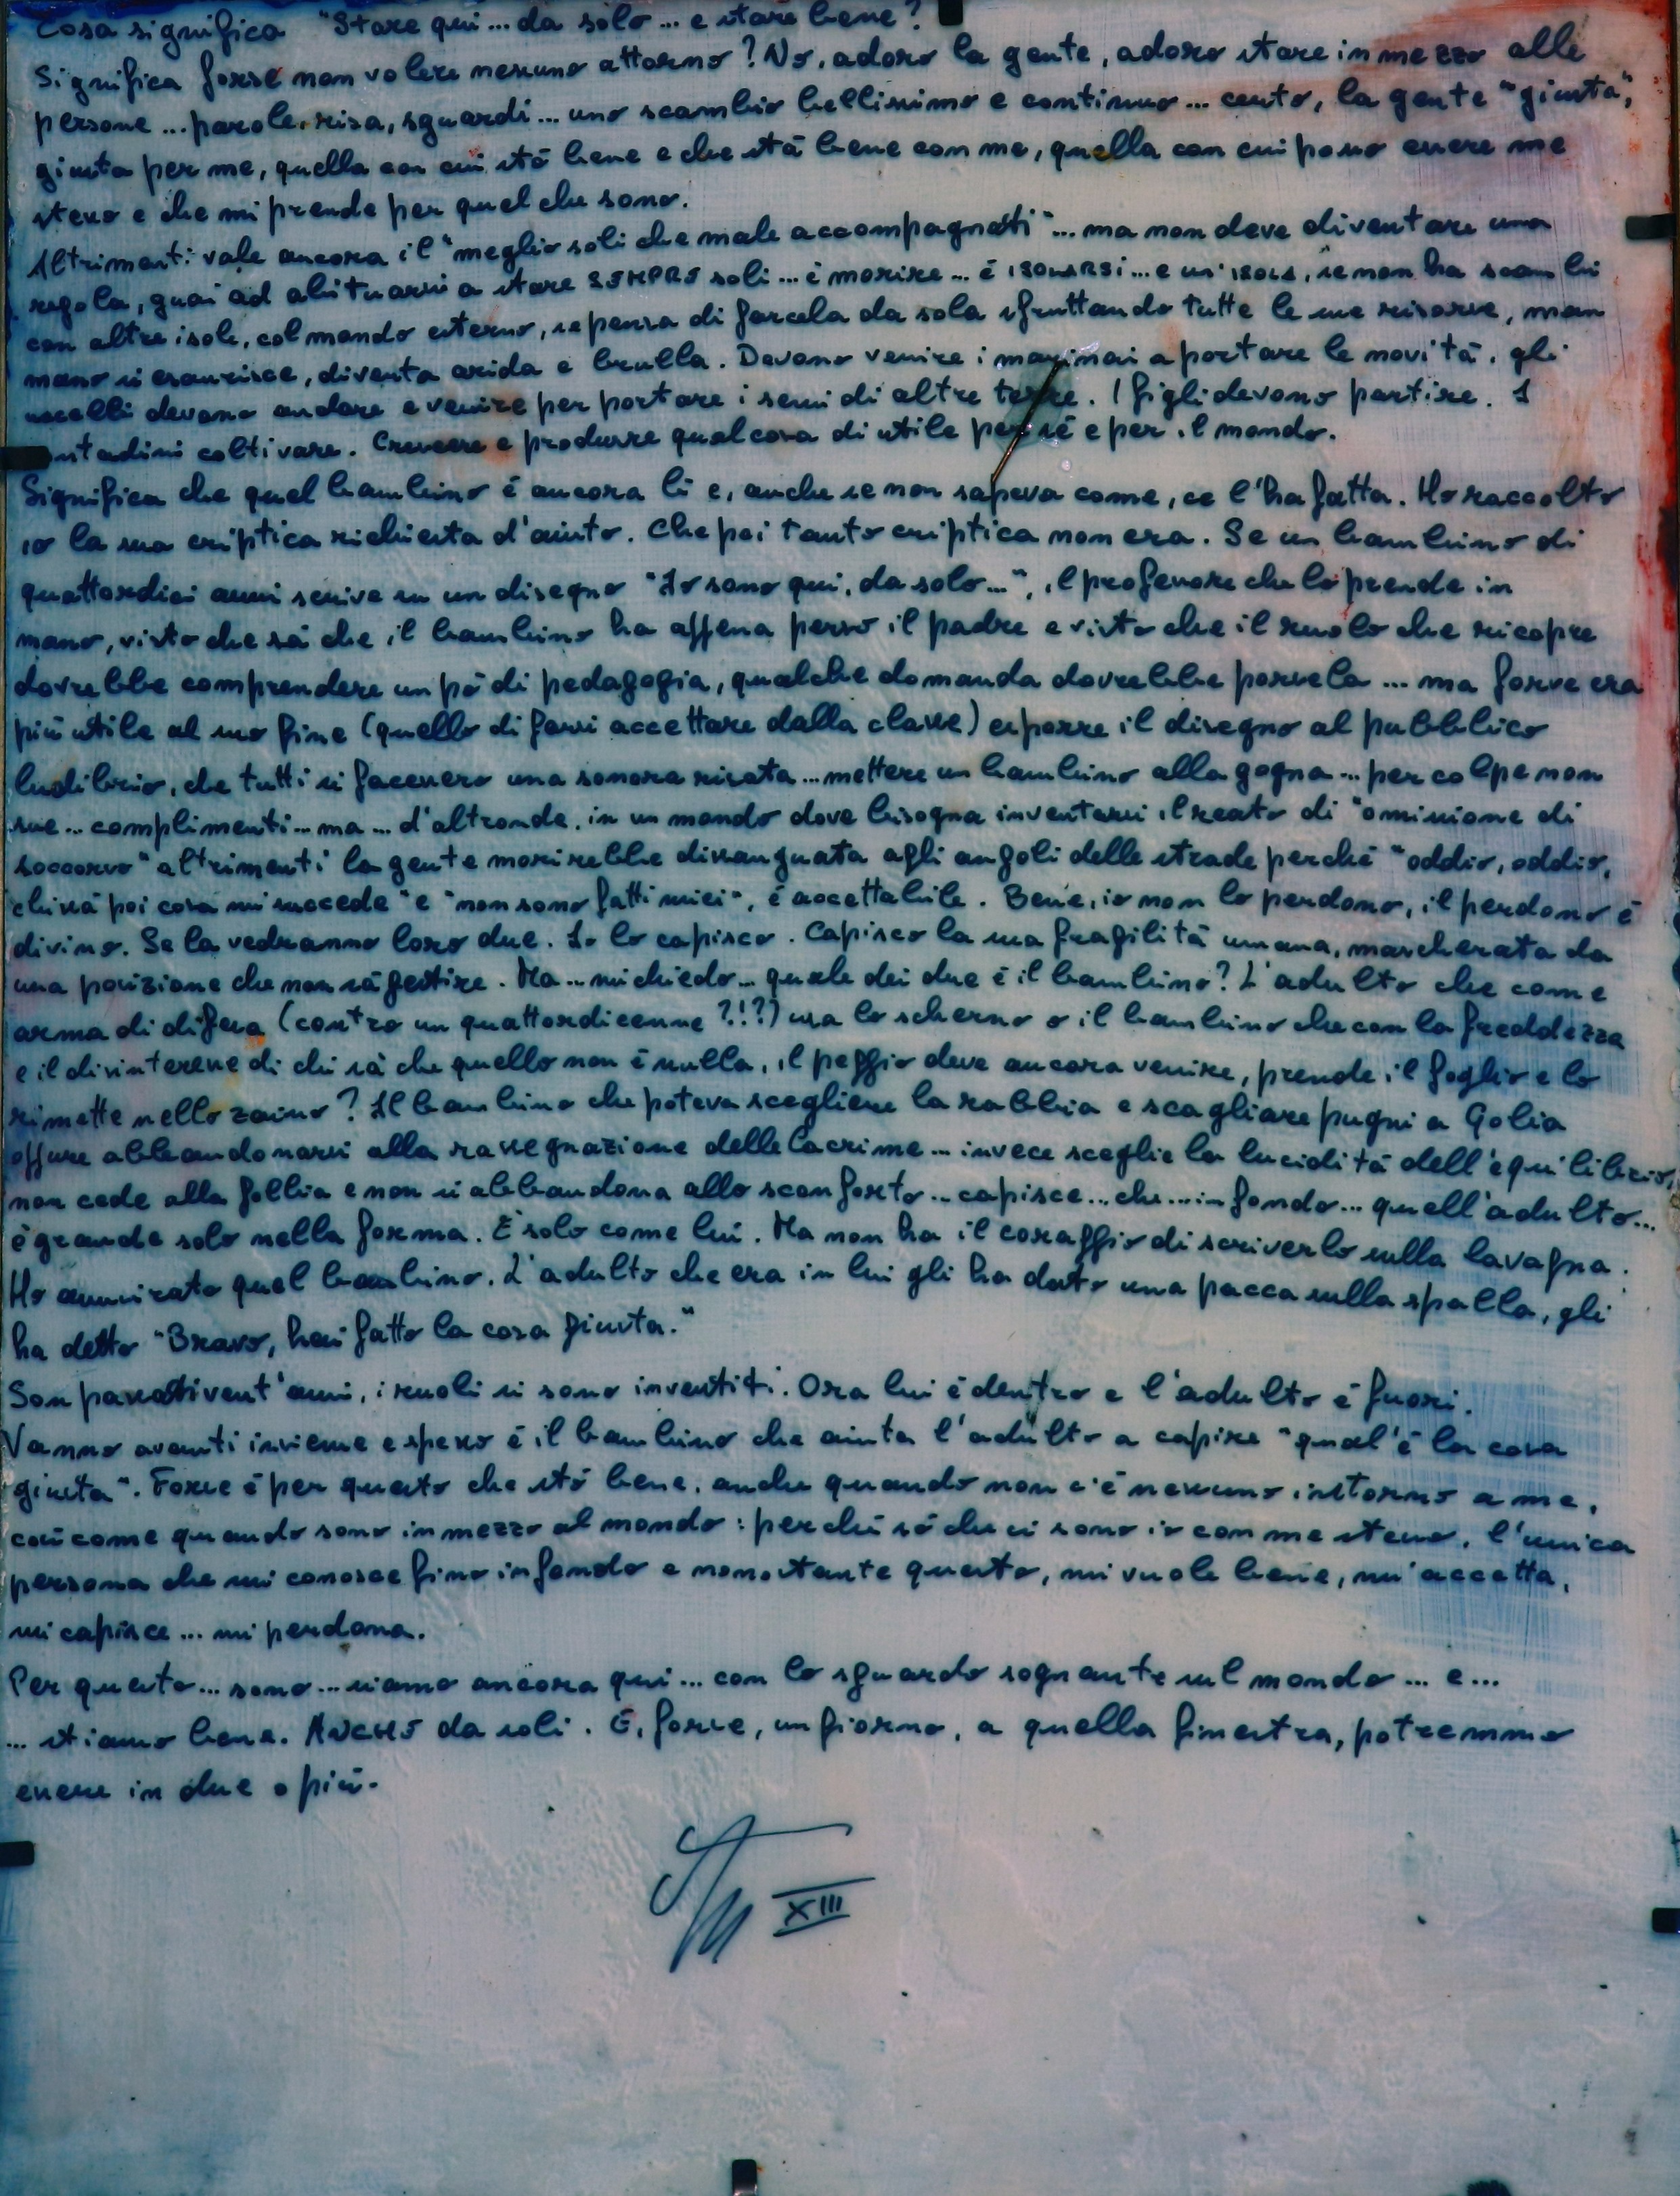 Cosa significa "Stare qui... da solo... e stare bene?
Significa forse non volere nessuno attorno? No, adoro la gente, adoro stare in mezzo alle
persone... parole, risa, sguardi... uno scambio bellissimo e continuo... certo, la gente "giusta",
giusta per me, quella con cui stò bene e che stà bene con me, quella con cui posso essere me
stesso e che mi prende per quel che sono.
Altrimenti vale ancora il "meglio soli che male accompagnati"... ma non deve diventare una
regola, guai ad abituarsi a stare SEMPRE soli... è morire... è ISOLARSI... e un'isola, se non ha scambi
con altre isole, col mondo esterno, se pensa di farcela da sola sfruttando tutte le sue risorse, man
mano si esaurisce, diventa arida e brulla. Devono venire i marinai a portare le novità, gli
uccelli devono andare e venire per portare i semi di altre terre. I figli devono partire. I
contadini coltivare. Crescere e produrre qualcosa di utile per sé e per il mondo.
Significa che quel bambino è ancora lì e, anche se non sapeva come, ce l'ha fatta. Ho raccolto
io la sua criptica richiesta d'aiuto. Che poi tanto criptica non era. Se un bambino di
quattordici anni scrive su un disegno "Io sono qui, da solo...", il professore che lo prende in
mano, visto che sà che il bambino ha appena perso il padre e visto che il ruolo che ricopre
dovrebbe comprendere un pò di pedagogia, qualche domanda dovrebbe porsela... ma forse era
più utile al suo fine (quello di farsi accettare dalla classe) esporre il disegno al pubblico
ludibrio, che tutti si facessero una sonora risata... mettere un bambino alla gogna... per colpe non
sue... complimenti... ma... d'altronde, in un mondo dove bisogna inventarsi il reato di "omissione di
soccorso" altrimenti la gente morirebbe dissanguata agli angoli delle strade perché "oddio, oddio,
chissà poi cosa mi succede" e "non sono fatti miei", è accettabile. Bene, io non lo perdono, il perdono è
divino. Se la vedranno loro due. Io lo capisco. Capisco la sua fragilità umana, mascherata da
una posizione che non sà gestire. Ma... mi chiedo... quale dei due è il bambino? L'adulto che come
arma di difesa (contro un quattordicenne ?!?) usa lo scherno o il bambino che con la freddezza
e il disinteresse di chi sà che quello non è nulla, il peggio deve ancora venire, prende il foglio e lo
rimette nello zaino? Il bambino che poteva scegliere la rabbia e scagliare pugni a Golia
oppure abbandonarsi alla rassegnazione delle lacrime... invece sceglie la lucidità dell'equilibrio,
non cede alla follia e non si abbandona allo sconforto... capisce... che... in fondo... quell'adulto...
è grande solo nella forma. È solo come lui. Ma non ha il coraggio di scriverlo sulla lavagna.
Ho ammirato quel bambino. L'adulto che era in lui gli ha dato una pacca sulla spalla, gli
ha detto "Bravo, hai fatto la cosa giusta."
Son passati vent'anni, i ruoli si sono invertiti. Ora lui è dentro e l'adulto è fuori.
Vanno avanti insieme e spesso è il bambino che aiuta l'adulto a capire "qual'è la cosa
giusta". Forse è per questo che stò bene, anche quando non c'è nessuno intorno a me,
così come quando sono in mezzo al mondo: perché sò che ci sono io con me stesso, l'unica
persona che mi conosce fino in fondo e nonostante questo, mi vuole bene, mi accetta,
mi capisce... mi perdona.
Per questo... sono... siamo ancora qui... con lo sguardo sognante sul mondo... e...
... stiamo bene. ANCHE da soli. E, forse, un giorno, a quella finestra, potremmo
essere in due o più.
XIII